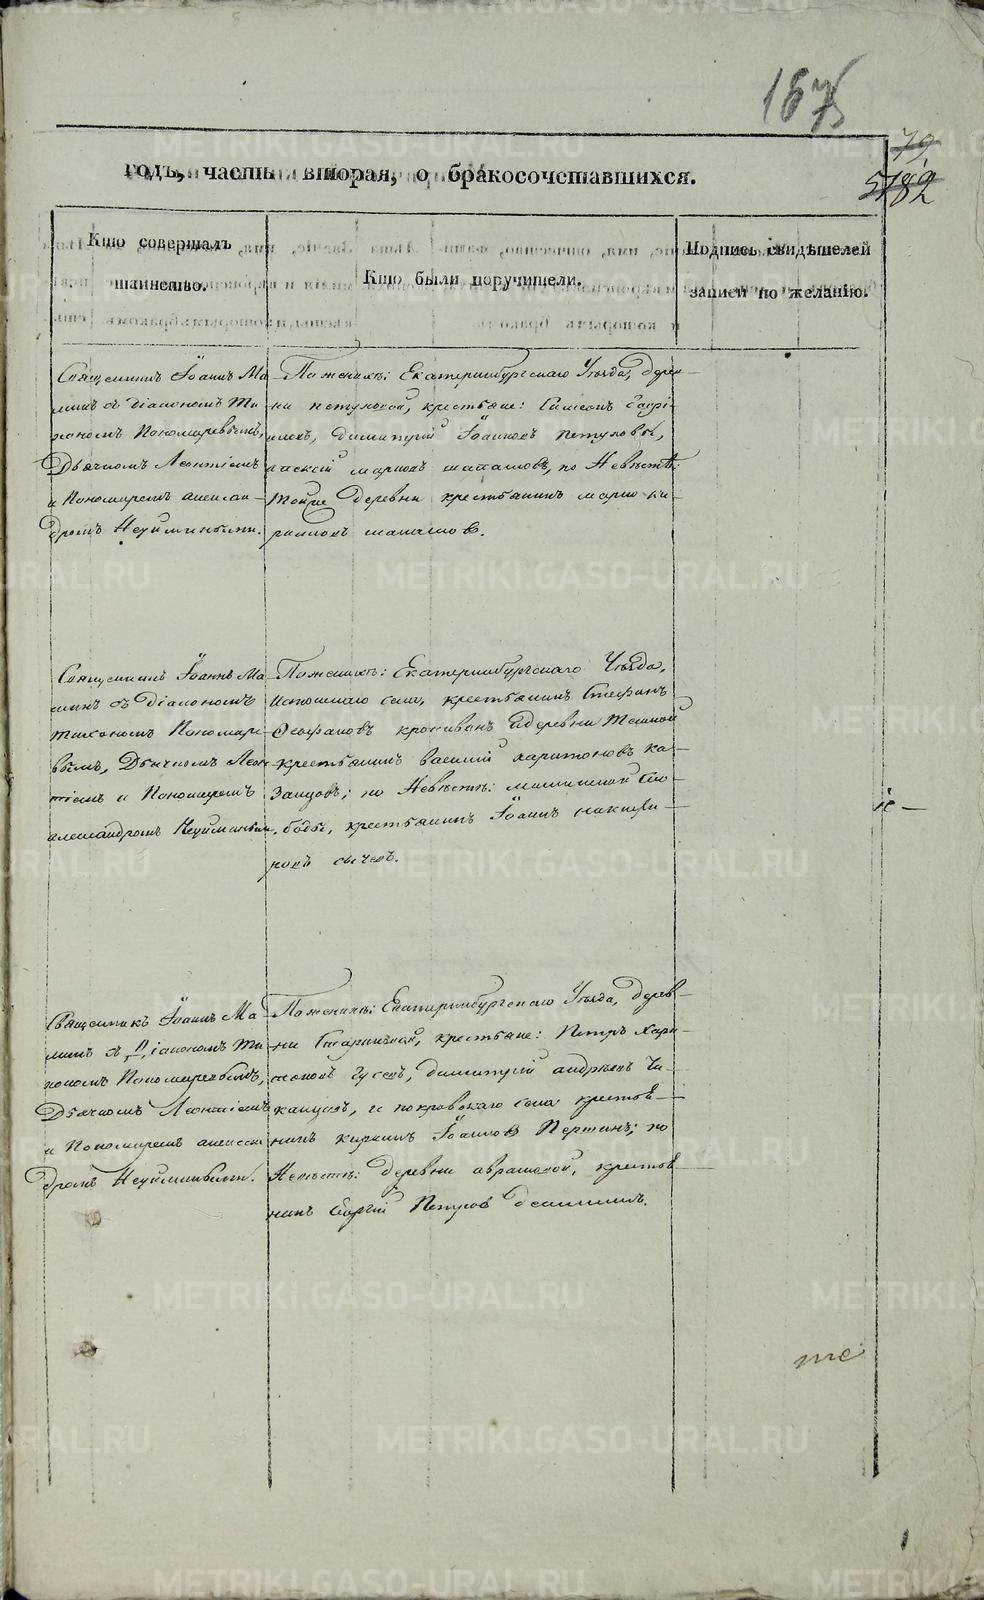 167
79
5182
годъ, часть вторая, о бракосочетавшихся.
Кто совершалъ таинство.
Кто были поручители.
Подпись свидѣтелей записи по желанію.
Священникъ Іоаннъ Ма-
минъ съ діакономъ Ти-
хономъ Пономаревымъ,
Дьячкомъ Леонтіемъ
и Пономаремъ алексан-
дромъ Неуйминымъ.
По женихѣ: Екатеринбургскаго Уѣзда, дерев-
ни петуховой, крестьяне: Симеонъ
Димитрій Іоанновъ Петуховы,
марковъ по Невѣстѣ:
Тойже деревни крестьянинъ марко ки-
риловъ
Священникъ Іоаннъ Ма-
минъ съ діакономъ
тихономъ Пономаре-
вымъ, Дьячкомъ Леон-
тіемъ и Пономаремъ
александромъ Неуйминымъ.
По женихѣ: Екатеринбургскаго Уѣзда,
села, крестьянинъ Стефанъ
и деревни Темной
крестьянинъ василій харитоновъ ка-
занцовъ; по Невѣстѣ: сло-
боды, крестьянинъ Іоаннъ никифо-
ровъ сычевъ.
Священникъ Іоаннъ Ма-
минъ съ Діакономъ Ти-
хономъ Пономаревымъ,
Дьячкомъ Леонтіемъ
и Пономаремъ алексан-
дромъ Неуйминымъ.
По женихѣ: Екатеринбургскаго Уѣзда, дерев-
ни крестьяне: Петръ Хари-
тоновъ Гусевъ, Димитрій андреевъ
и покровскаго села крестья-
нинъ кириллъ Іоанновъ Першинъ; по
Невѣстѣ: деревни крестья-
нинъ Георгій Петровъ
те
METRIKI.GASO-URAL.RU